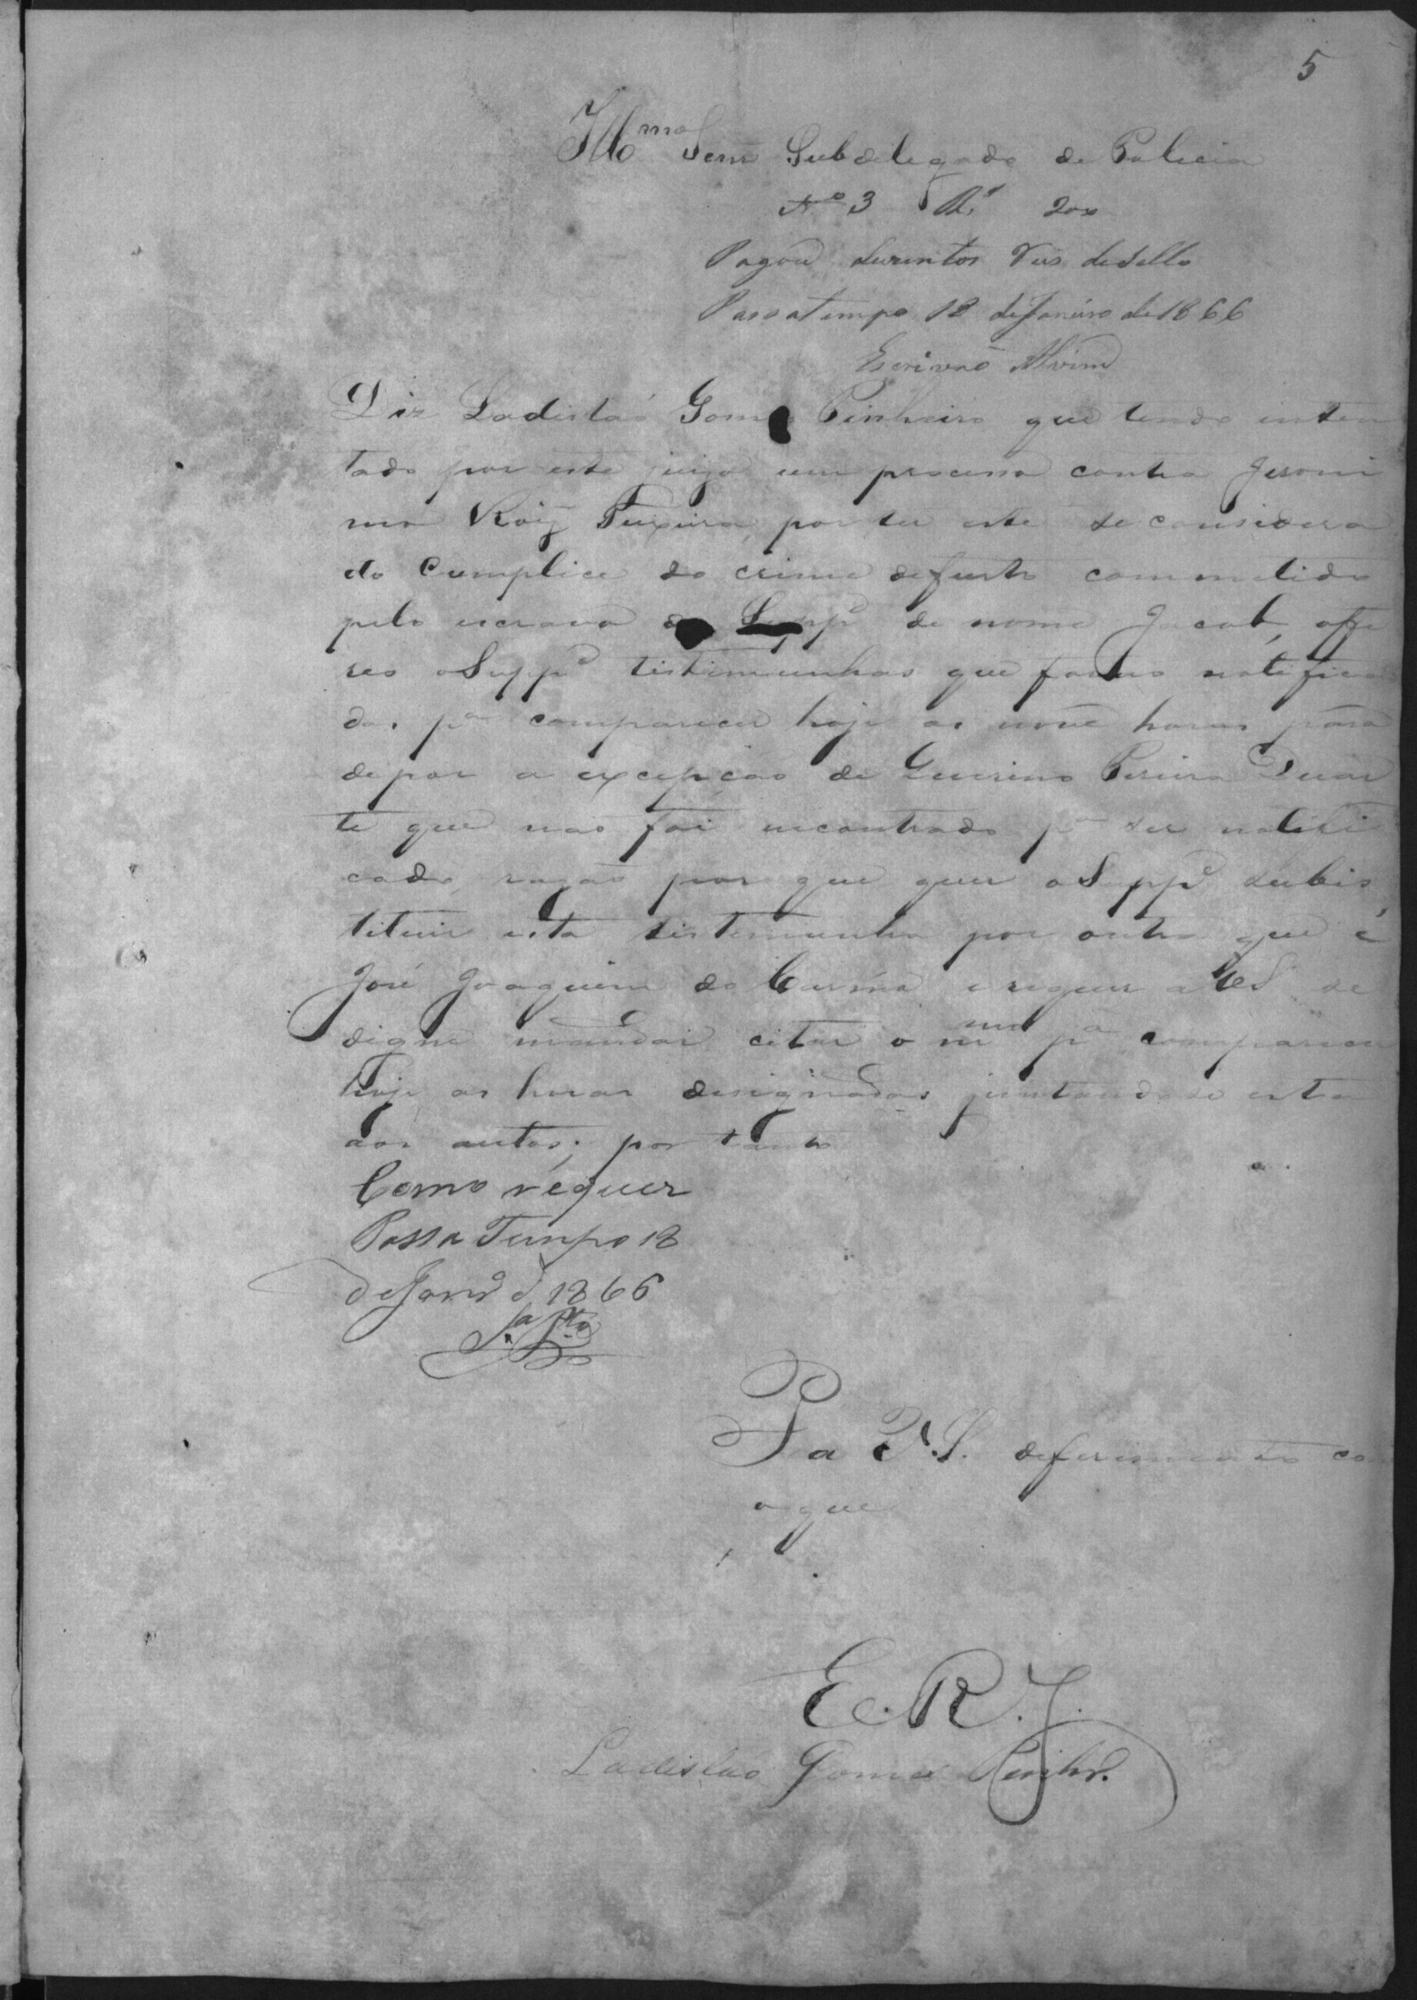 5
Illmo Senr Subdelegado de Policia
No 3 Rs 200
Pagou duzentos reis de sello
Passatempo 18 de Janeiro de 1866
Escrivão Alvim
Diz Ladisláo Gomes Pinheiro que tendo inten
tado por este juizo um processo contra Jeroni
mo Roiz Teixeira, por ter este se considera
do Cumplice do crime de furto commetido
pelo escravo do Suppe de nome Jacob, offe
reo o Suppe testimunhas que forão notifica
das pa comparecer hoje as nove horas para
depor a excepção de Guerino Pereira Duar
te que nao foi encontrado pa ser notifi
cado, razão por que quer o Suppe subis
tituir esta testemunha por outra que é
José Joaquim do Carmo e requer a VS se
digne mandar citar o mmo pa comparecer
hoje as horas designadas juntando se esta
aos autos; por tanto
Como requer
Passa Tempo 18
de Janro d 1866
P a V.S. deferimento co
o que
E. R. J.
Ladisláo Gomes Pinhro.